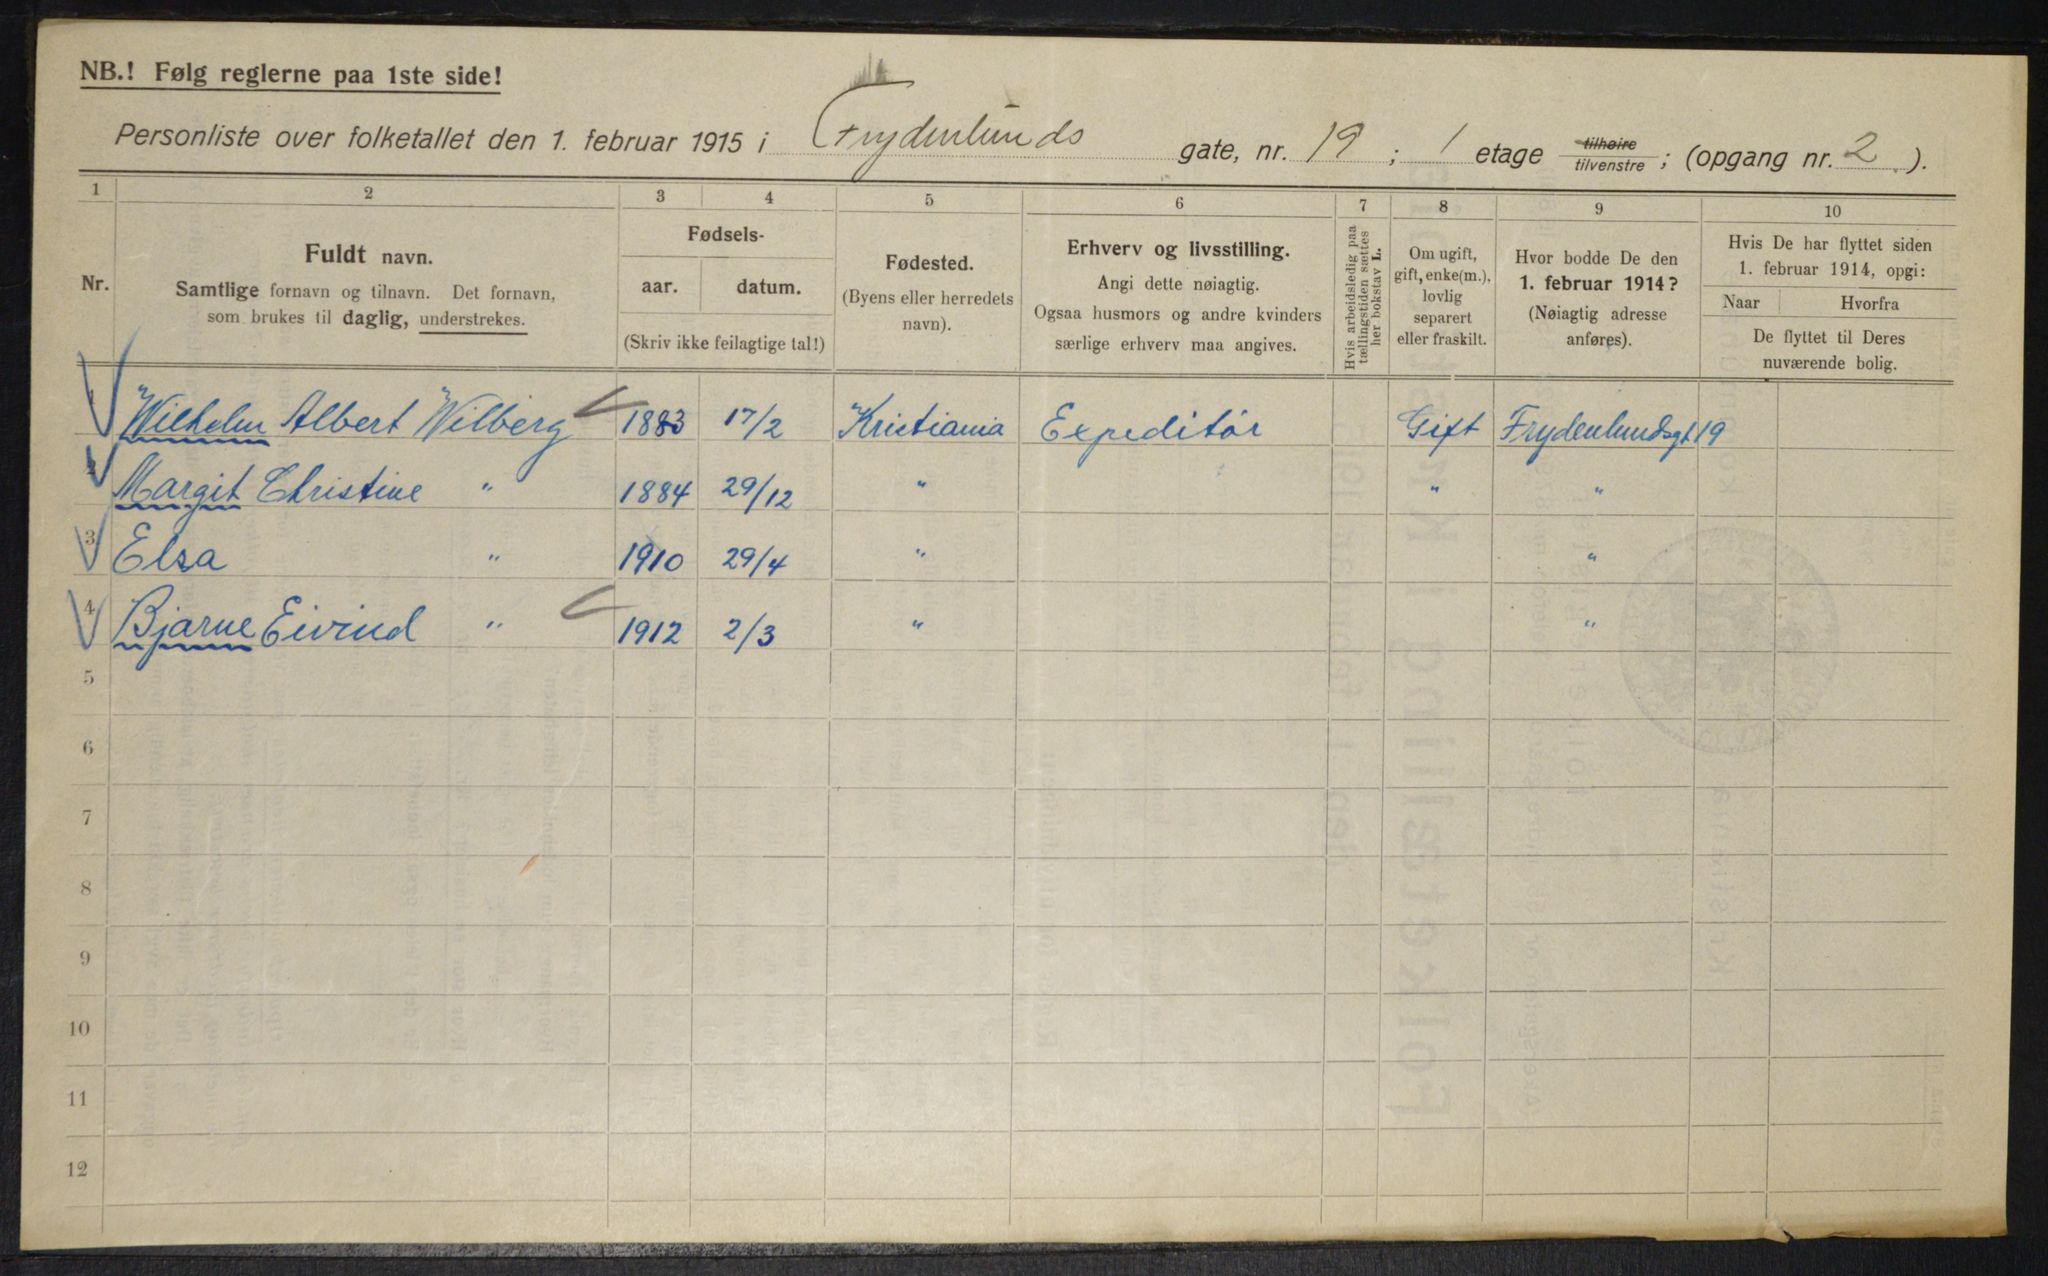 NB.! Følg reglerne paa 1ste side!
Personliste over folketallet den 1. februar 1915 i Frydenlunds gate, nr. 19 ; 1 etage tilhøire tilvenstre ; (opgang nr. 2 ).
1 2 3 4 5 6 7 8 9 10
Nr.
Fuldt navn.
Samtlige fornavn og tilnavn. Det fornavn,
som brukes til daglig, understrekes.
Fødsels-
aar. datum.
(Skriv ikke feilagtige tal!)
Fødested.
(Byens eller herredets
navn).
Erhverv og livsstilling.
Angi dette nøiagtig.
Ogsaa husmors og andre kvinders
særlige erhverv maa angives.
Hvis arbeidsledig paa
tællingstiden sættes
her bokstav L.
Om ugift,
gift, enke(m.),
lovlig
separert
eller fraskilt.
Hvor bodde De den
1. februar 1914?
(Nøiagtig adresse
anføres).
Hvis De har flyttet siden
1. februar 1914, opgi:
Naar Hvorfra
De flyttet til Deres
nuværende bolig.
1 Wilhelm Albert Wilberg 1883 17/2 Kristiania Expeditør Gift Frydenlundsgt 19
2 Margit Christine " 1884 29/12 " " "
3 Elsa " 1910 29/4 " "
4 Bjarne Eivind " 1912 2/3 " "
5
6
7
8
9
10
11
12